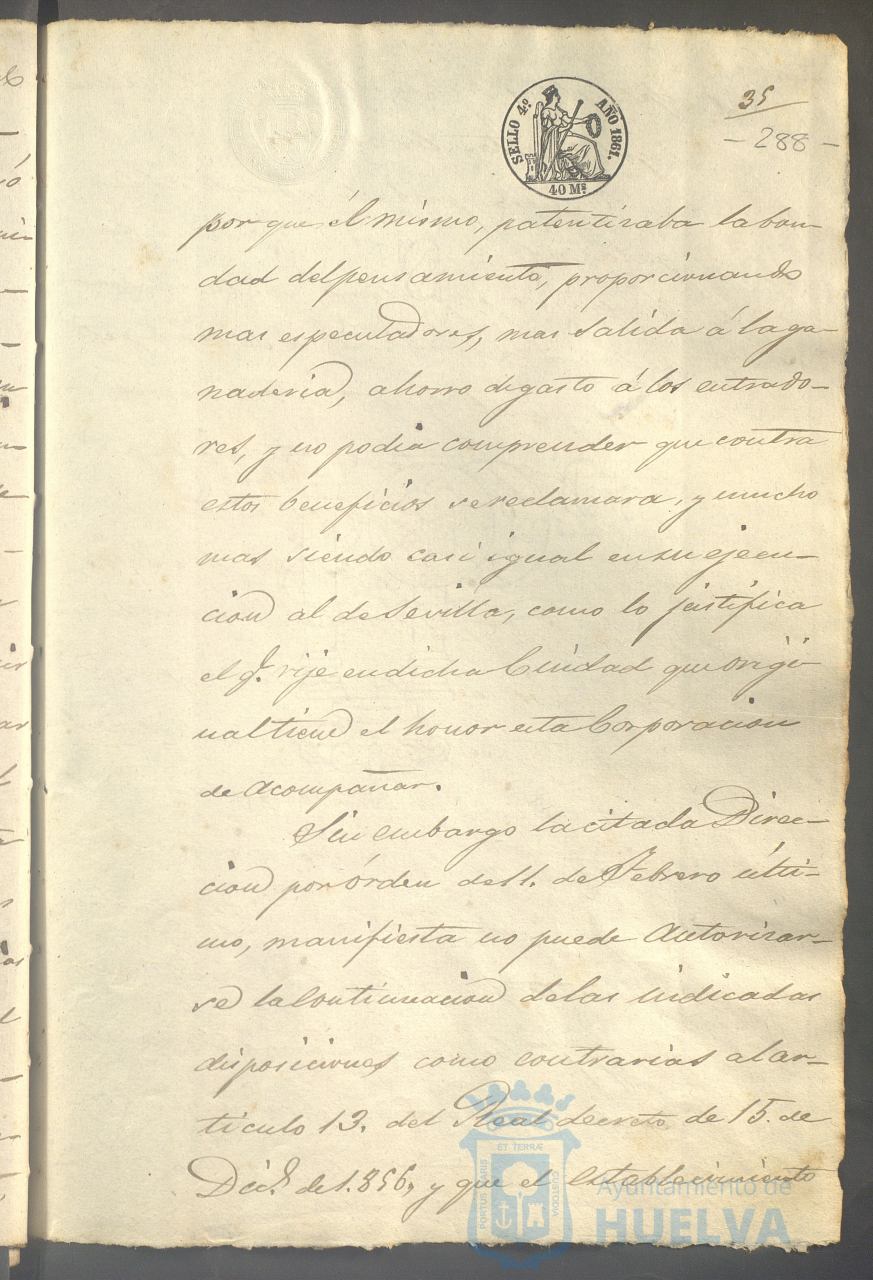 SELLO 4º AÑO 1861.
40 Ms.
35
- 288 -
por que él mismo, patentizaba la bon-
dad del pensamiento, proporcionando
mas especuladores, mas salida á la ga-
naderia, ahorro de gasto á los entrado-
res, y no podia comprender que contra
estos beneficios se reclamara, y mucho
mas siendo casi igual en su ejecu-
cion al de Sevilla, como lo justifica
el q.e rije en dicha Ciudad que origi-
nal tiene el honor esta Corporacion
de acompañar.
Sin embargo la citada Direc-
cion por órden de 11. de Febrero ulti-
mo, manifiesta no puede autorizar-
se la continuacion de las indicadas
disposiciones como contrarias al ar-
ticulo 13. del Real decreto de 15. de
Dic.e de 1.856, y que el establecimiento
PORTUS MARIS ET TERRÆ CUSTODIA
Ayuntamiento de
HUELVA